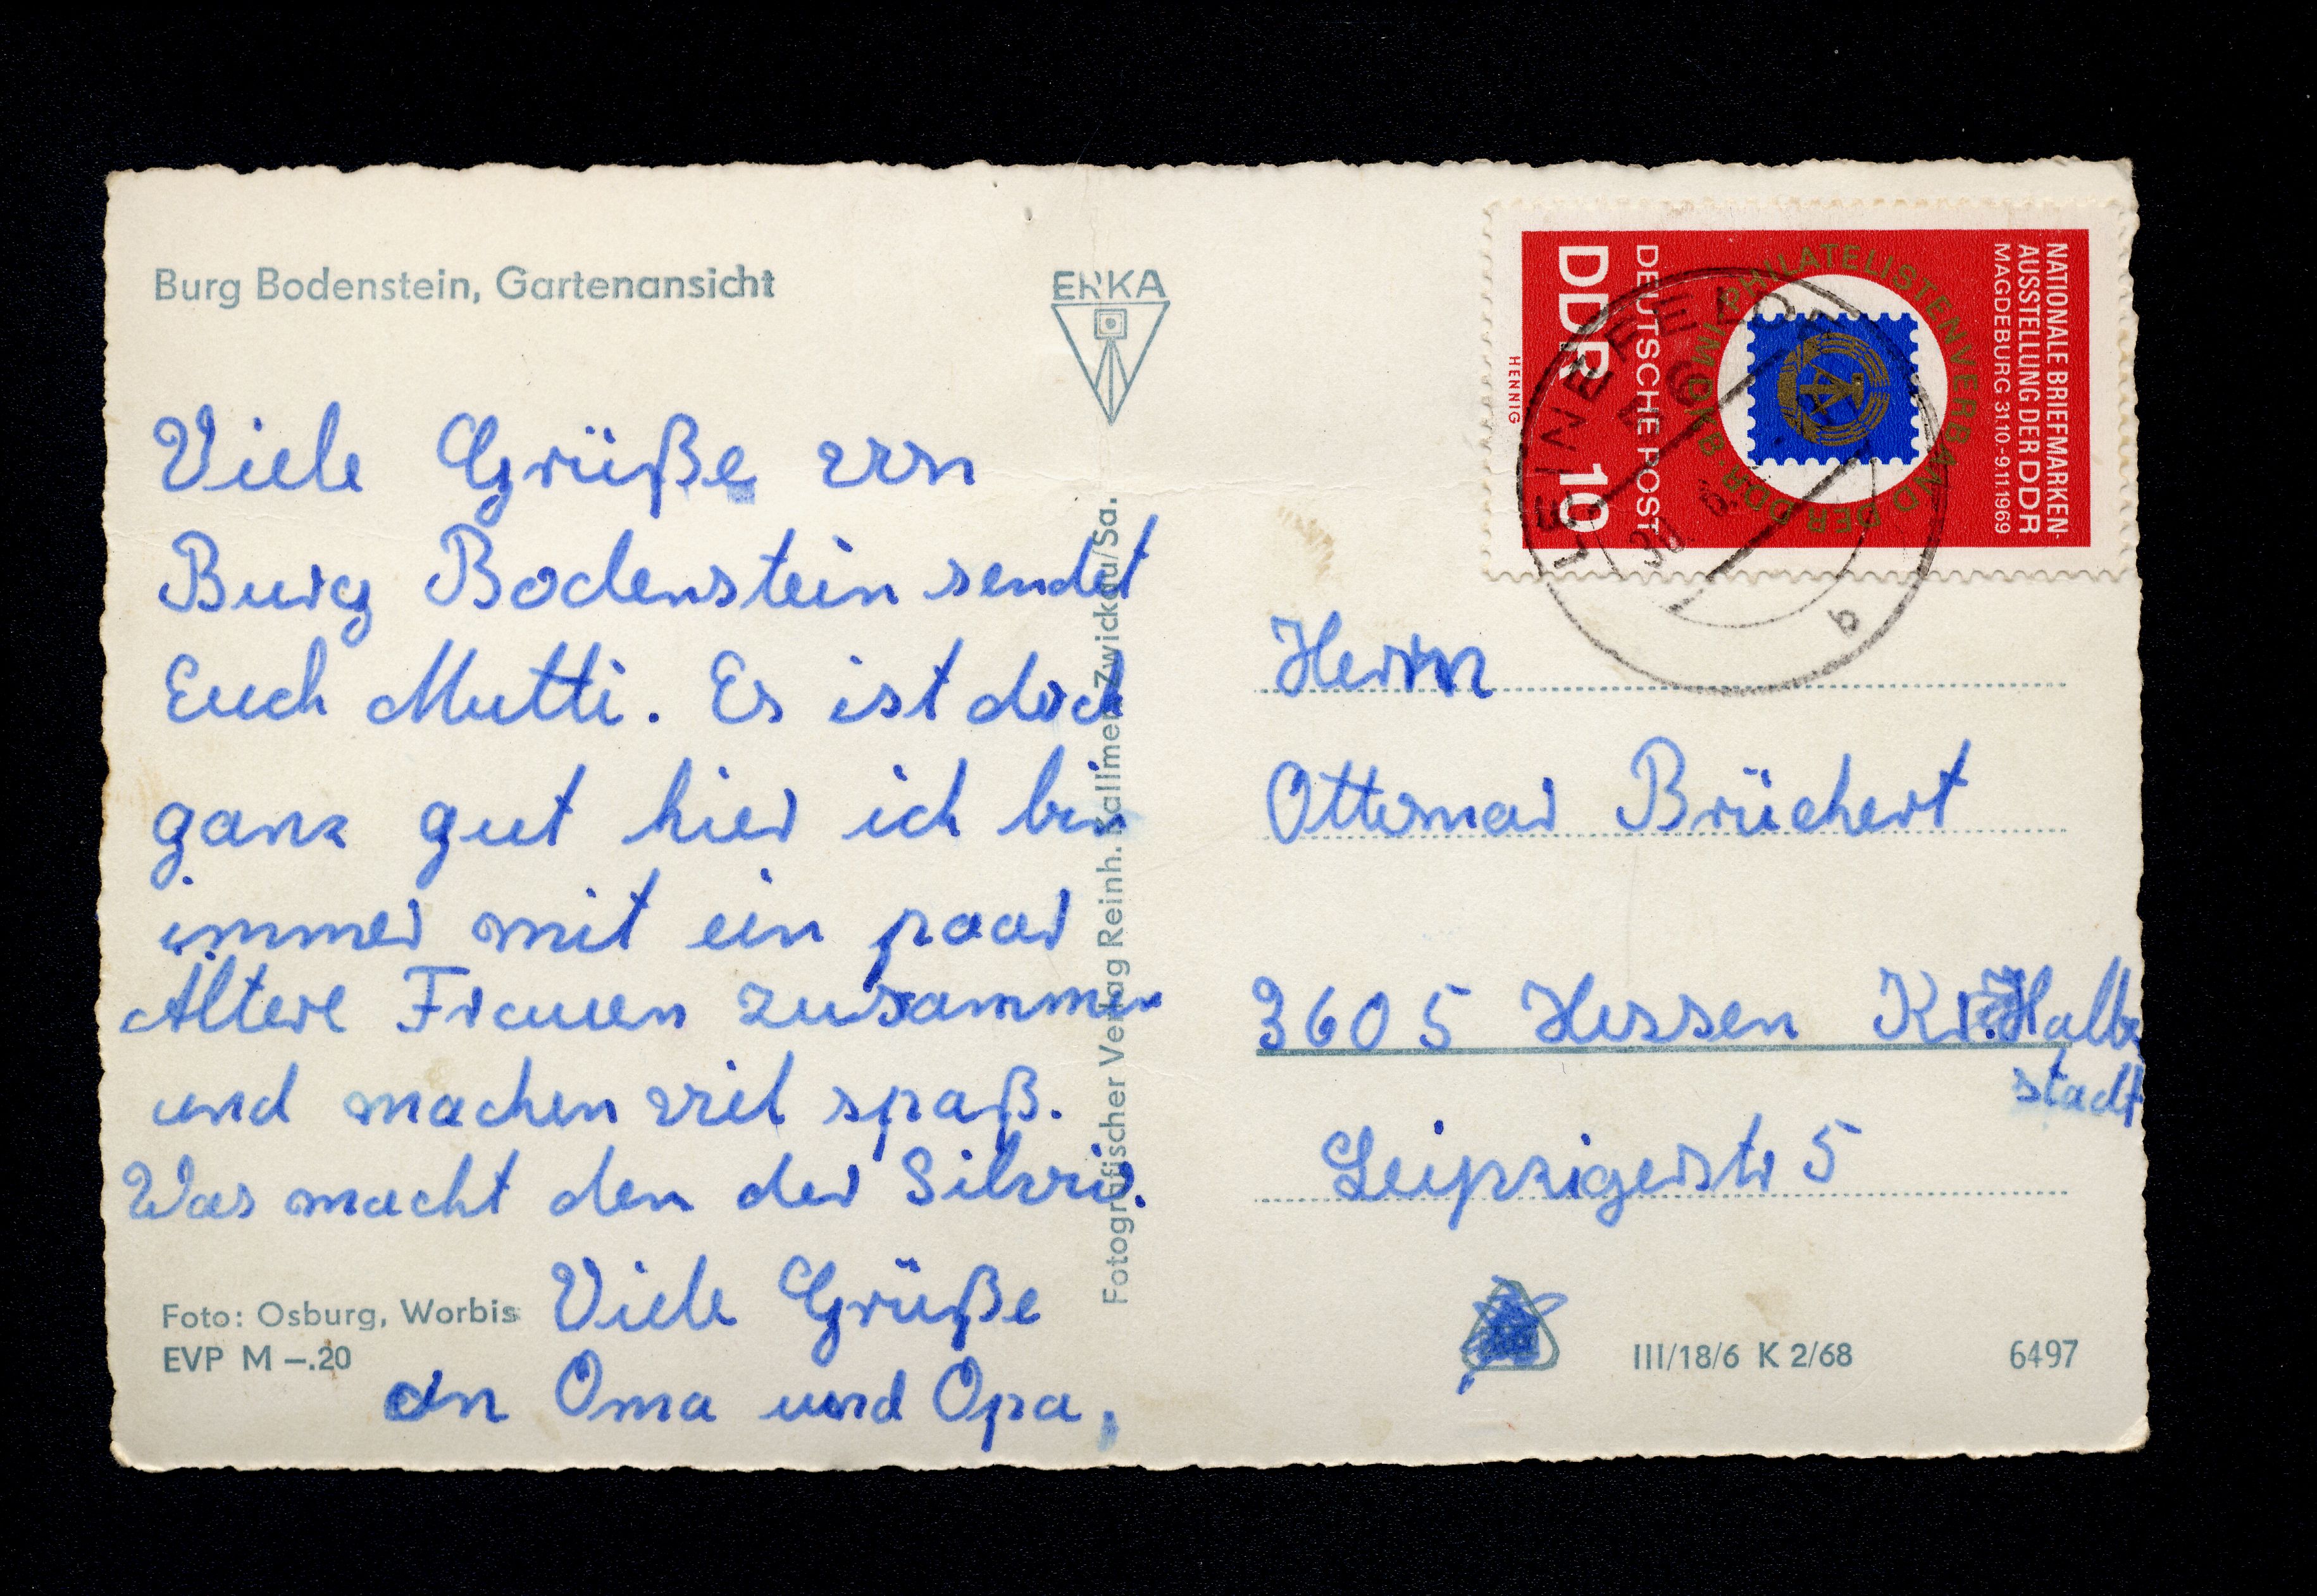 Burg Bodenstein, Gartenansicht
ERKA
Viele Grüße von
Burg Bodenstein sendet
Euch Mutti. Es ist doch
ganz gut hier ich bin
immer mit ein paar
Altere Frauen zusammen
und machen viel spaß.
Was macht den der Silvio.
Viele Grüße
an Oma und Opa,
Foto: Osburg, Worbis
EVP M –.20
Fotografischer Verlag Reinh. Kallmer, Zwickau/Sa.
NATIONALE BRIEFMARKEN-
AUSSTELLUNG DER DDR
MAGDEBURG 31.10.-9.11.1969
PHILATELISTENVERBAND DER DDR · IM DKB
DEUTSCHE POST
DDR 10
HENNIG
LEINEFELDE
b
Herrn
Ottomar Brüchert
3605 Hessen Kr. Halber
stadt
Leipzigerstr 5
III/18/6 K 2/68
6497